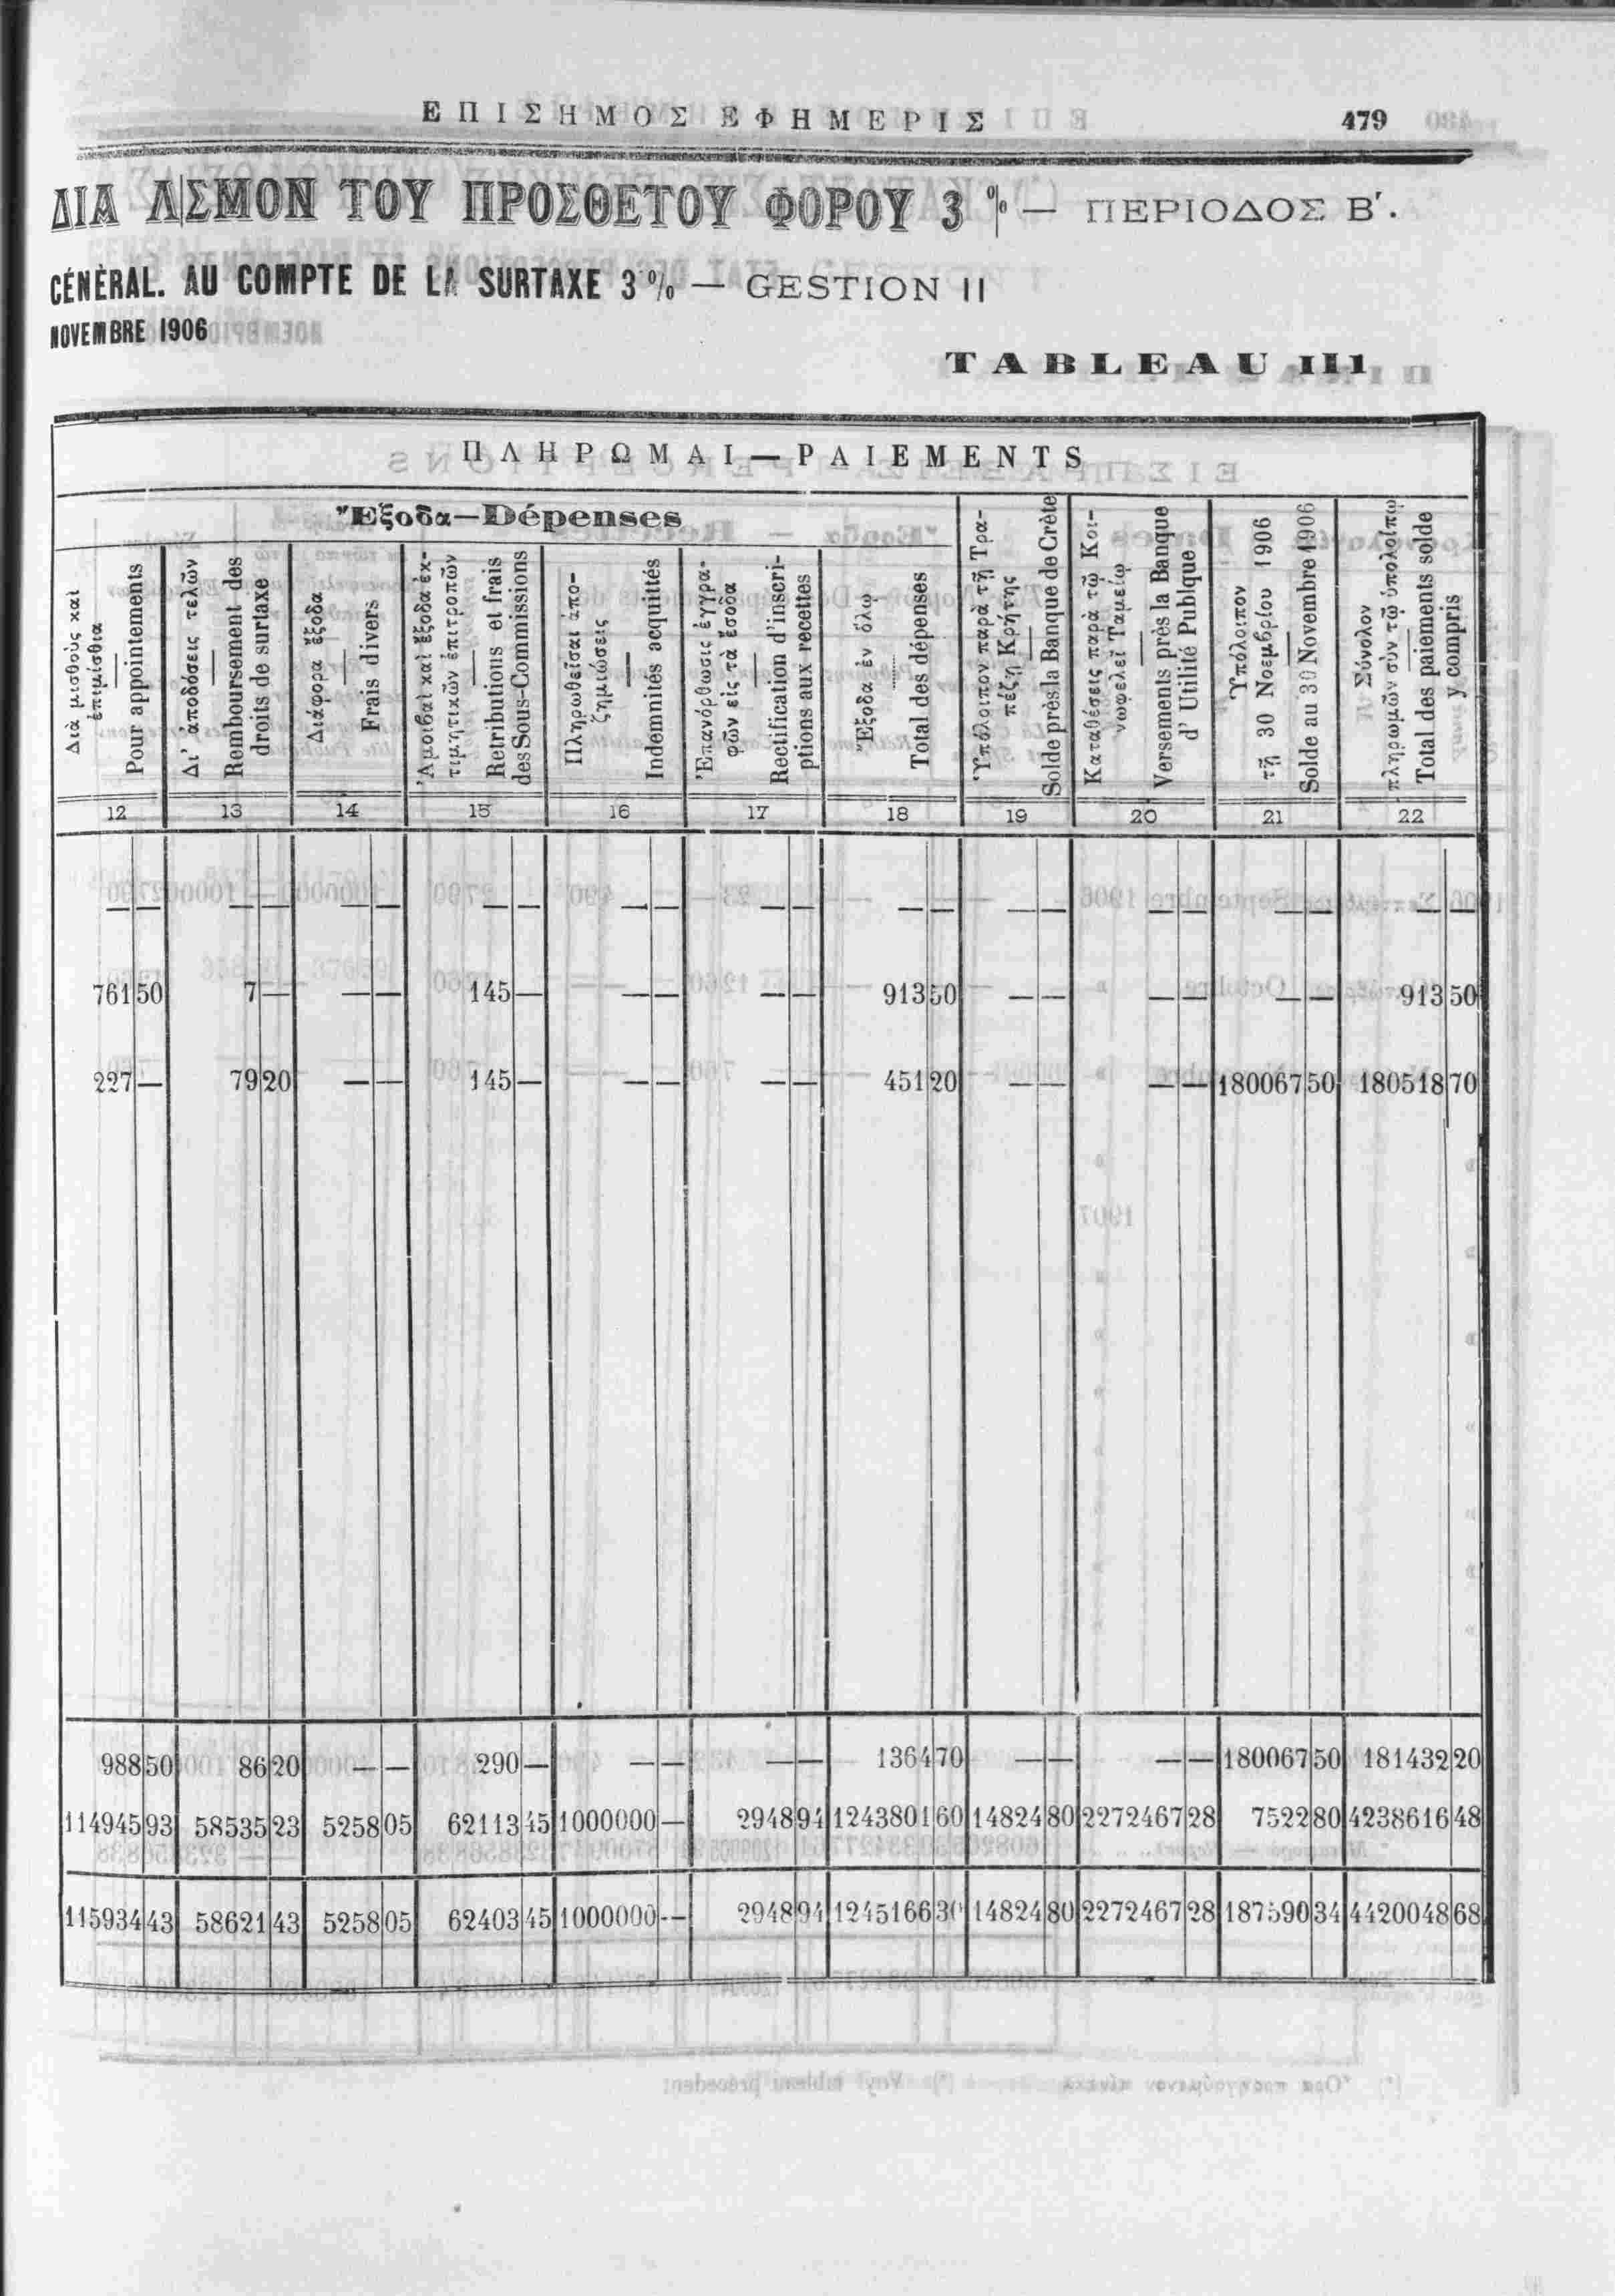 ΕΠΙΣΗΜΟΣ ΕΦΗΜΕΡΙΣ 479
ΔΙΑ ΛΣΜΟΝ ΤΟΥ ΠΡΟΣΘΕΤΟΥ ΦΟΡΟΥ 3 % — ΠΕΡΙΟΔΟΣ Β′.
CÉNÈRAL. AU COMPTE DE LA SURTAXE 3 % — GESTION II
NOVEMBRE 1906
TABLEAU III
ΠΛΗΡΩΜΑΙ — PAIEMENTS
Ἔξοδα—Dépenses
Διὰ μισθοὺς καὶ
ἐπιμίσθια
Pour appointements
Δι' ἀποδόσεις τελῶν
Remboursement des
droits de surtaxe
Διάφορα ἔξοδα
Frais divers
Ἀμοιβαὶ καὶ ἔξοδα ἐκ-
τιμητικῶν ἐπιτροπῶν
Retributions et frais
des Sous-Commissions
Πληρωθεῖσαι ἀπο-
ζημιώσεις
Indemnités acquittés
Ἐπανόρθωσις ἐγγρα-
φῶν εἰς τὰ ἔσοδα
Rectification d'inscri-
ptions aux recettes
Ἔξοδα ἐν ὅλῳ
Total des dépenses
Ὑπόλοιπον παρὰ τῇ Τρα-
πέζῃ Κρήτης
Solde près la Banque de Crète
Καταθέσεις παρὰ τῷ Κοι-
νωφελεῖ Ταμείῳ
Versements près la Banque
d' Utilité Publque
Ὑπόλοιπον
τῇ 30 Νοεμβρίου 1906
Solde au 30 Novembre 1906
Σύνολον
πληρωμῶν σὺν τῷ ὑπολοίπῳ
Total des paiements solde
y compris
12 13 14 15 16 17 18 19 20 21 22
— — — — — — — — — — — — — — — — — — — — — —
761 50 7 — — — 145 — — — — — 913 50 — — — — — — 913 50
227 — 79 20 — — 145 — — — — — 451 20 — — — — 180067 50 180518 70
988 50 86 20 — — 290 — — — — — 1364 70 — — — — 180067 50 181432 20
114945 93 58535 23 5258 05 62113 45 1000000 — 2948 94 1243801 60 14824 80 2272467 28 7522 80 4238616 48
115934 43 58621 43 5258 05 62403 45 1000000 -- 2948 94 1245166 30 14824 80 2272467 28 187590 34 4420048 68